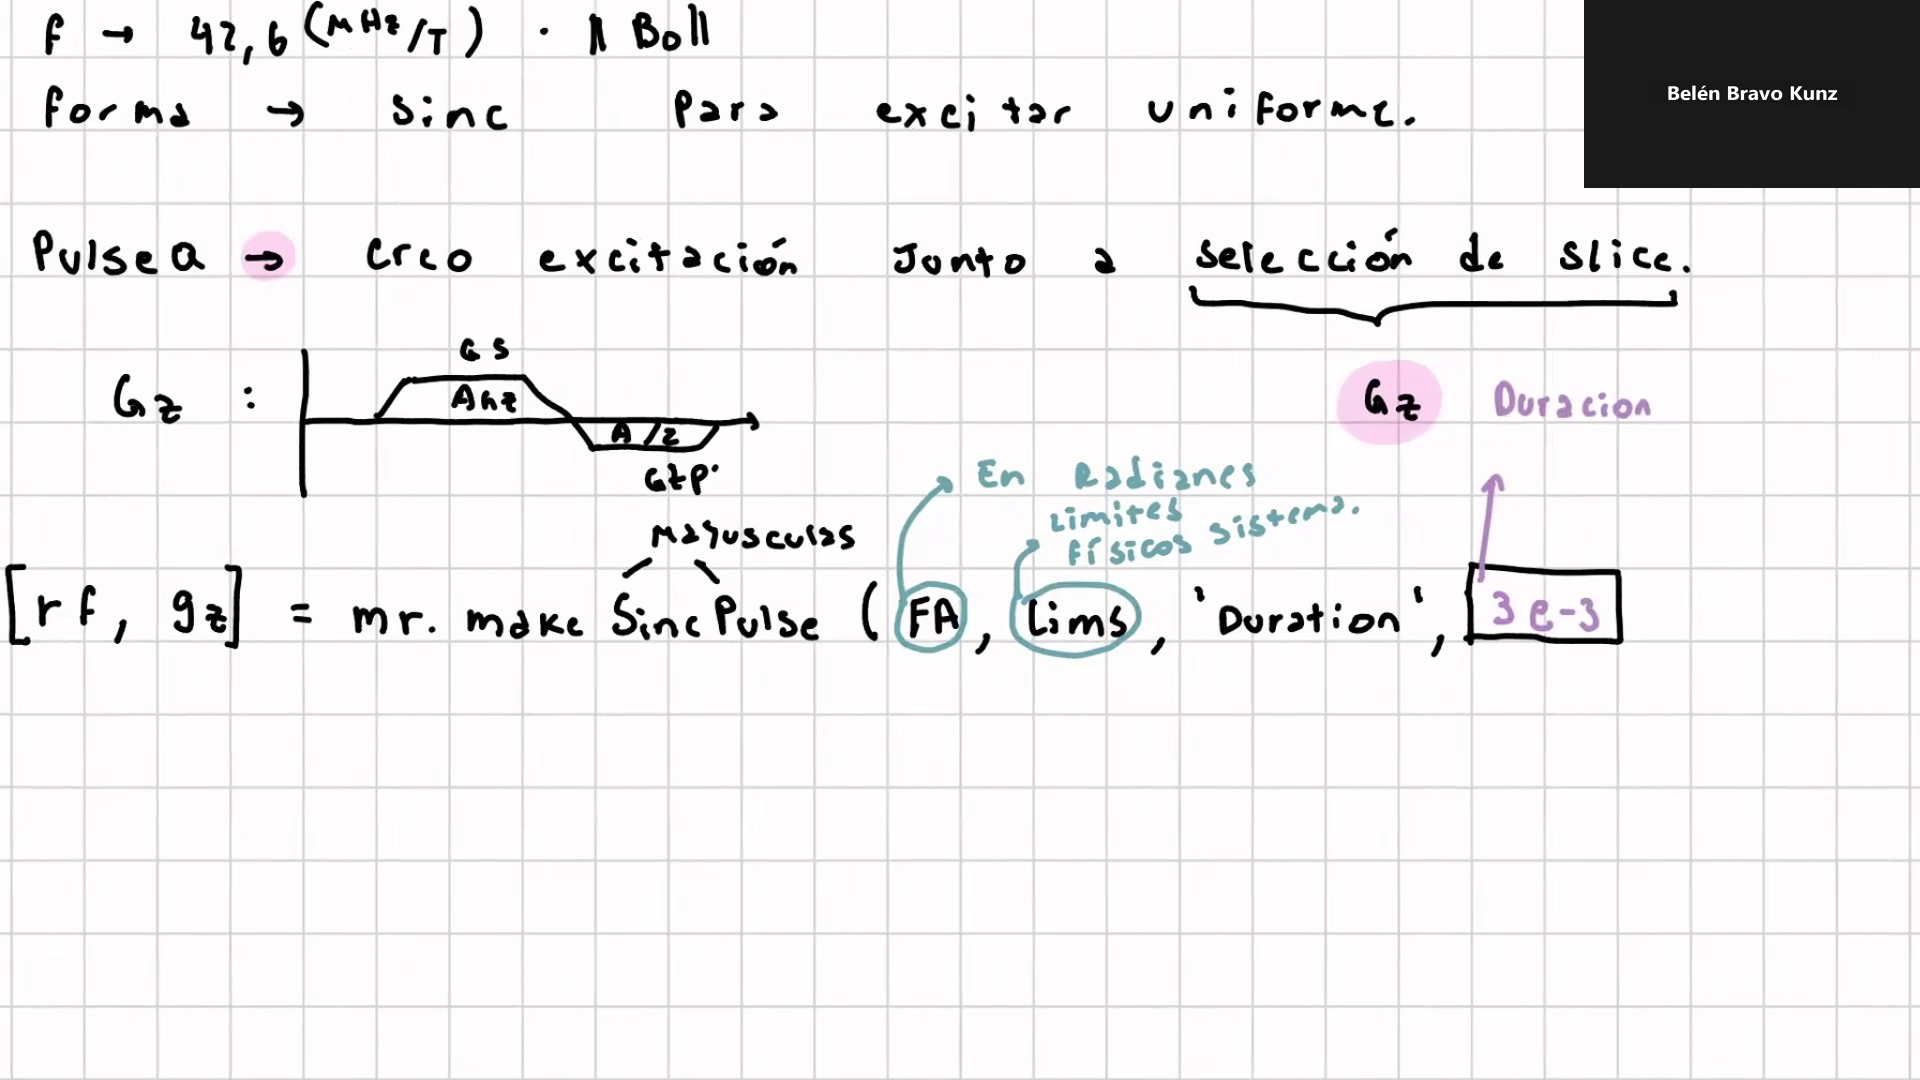 f → 42,6 (MHz/T) · ‖Bo‖
Belén Bravo Kunz
forma → sinc para excitar uniforme.
Pulsea → creo excitación junto a selección de slice.
GS
Gz : AGz
Gz Duracion
A/2
Gzp'
En Radianes
Limites
físicos sistema.
Mayusculas
[rf, gz] = mr. make SincPulse (FA, Lims, 'Duration', 3e-3